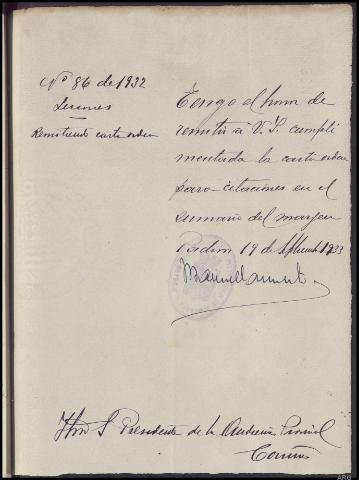 Nº 86 de 1932
Lesiones
Remitiendo carta orden
Tengo el honor de
remitir á V. S. cumpli
mentada la carta orden
para citaciones en el
sumario del margen
Padron 19 de Septiembre 1933
Manuel
Ilmo S Presidente de la Audiencia Provincial
Coruña